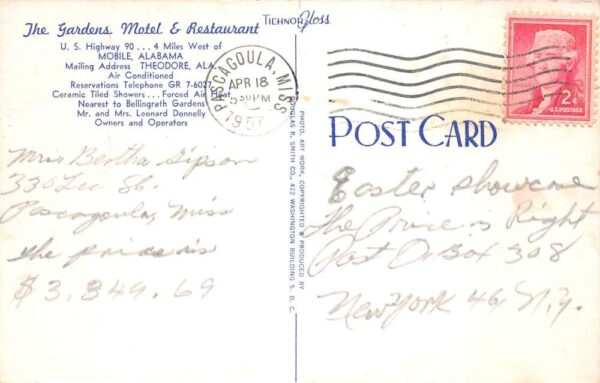 The Gardens Motel & Restaurant
U. S. Highway 90 ... 4 Miles West of
MOBILE, ALABAMA
Mailing Address THEODORE, ALA.
Air Conditioned
Reservations Telephone GR 7-6027
Ceramic Tiled Showers ... Forced Air Heat
Nearest to Bellingrath Gardens
Mr. and Mrs. Leonard Donnelly
Owners and Operators
TICHNOR Gloss
PASCAGOULA, MISS.
APR 18
5 PM
1957
2¢
U.S. POSTAGE
PHOTO, ART WORK, COPYRIGHT
DOUGLAS R. SMITH CO., 422 WASHINGTON BUILDING 5, D. C.
POST CARD
Mrs Bertha Gipson
330 Lee St.
Pascagoula, Miss
the price is
$3,849.69
Easter showcase
The Price is Right
Post O. Box 308
New York 46, N.Y.